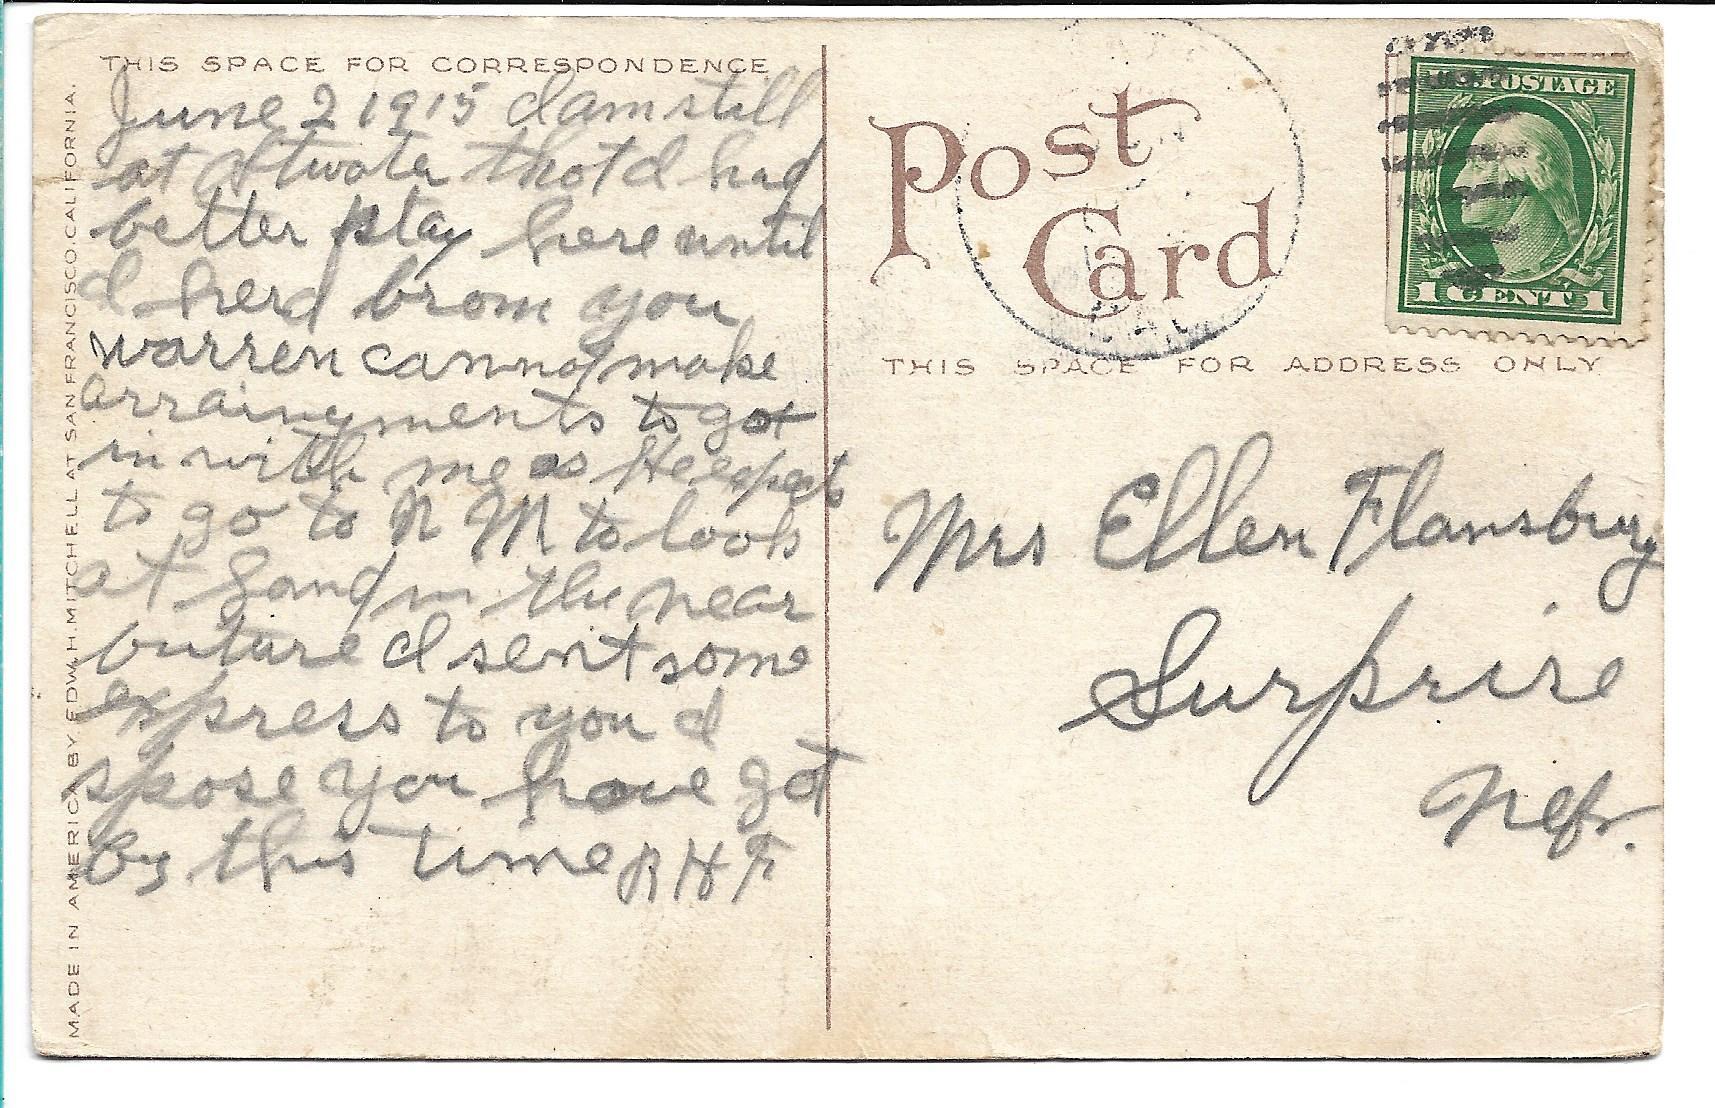 THIS SPACE FOR CORRESPONDENCE
June 2 1915 I am still
at Atwater thot I had
better stay here until
I herd brom you
warren cannot make
arraingments to got
in with me as He expects
to go to N M to look
at Land in the near
buture I sent some
express to you I
spose you have got
by this time R H F
MADE IN AMERICA BY EDW. H. MITCHELL AT SAN FRANCISCO. CALIFORNIA.
Post
Card
U.S. POSTAGE
1 CENT 1
THIS SPACE FOR ADDRESS ONLY
Mrs Ellen Flansburg
Surprise
Nebr.